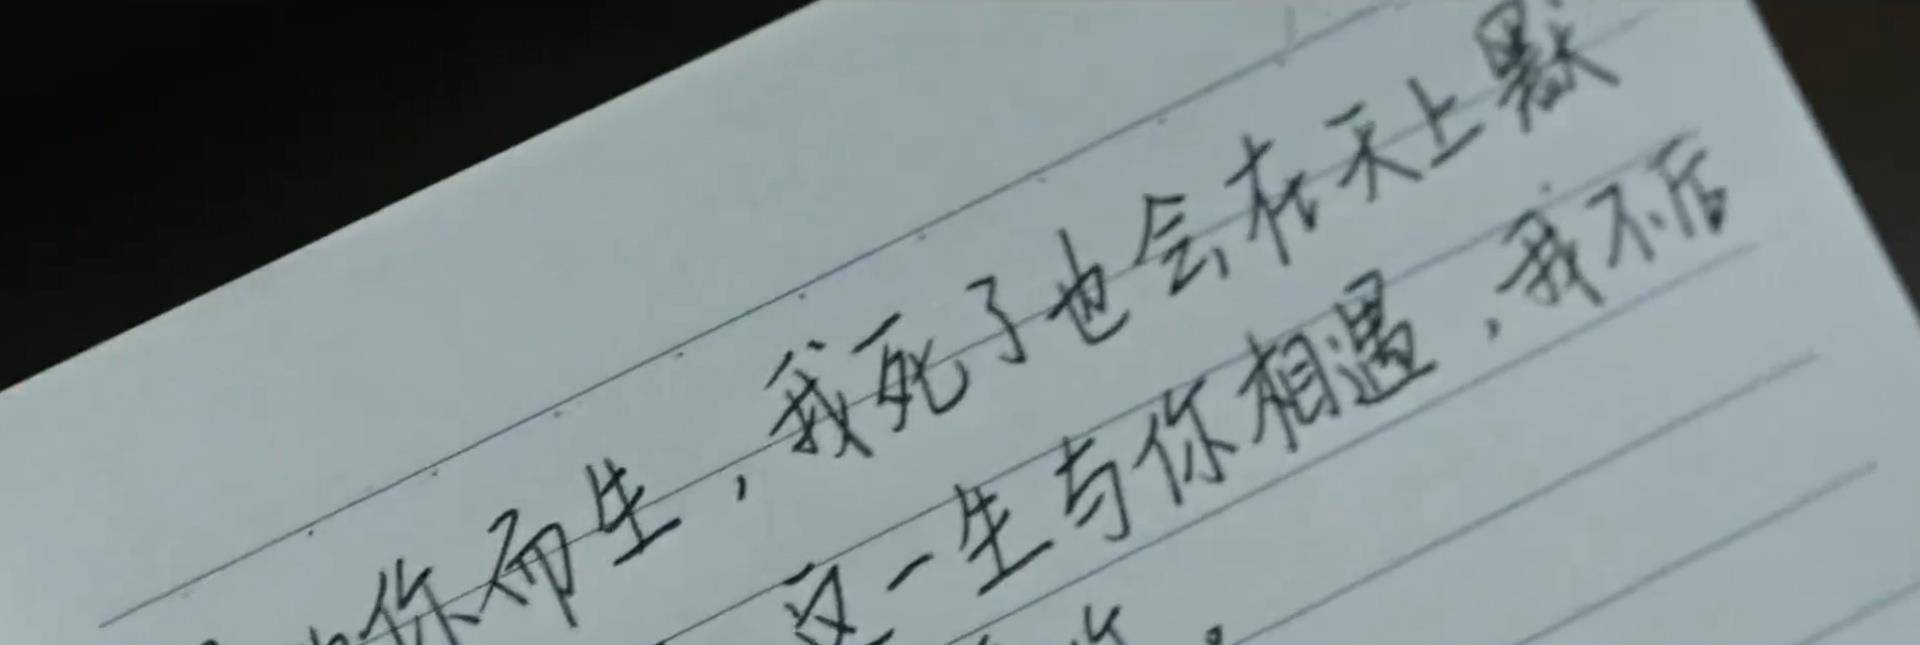 你而生，我死了也会在天上默
这一生与你相遇，我不后
你。